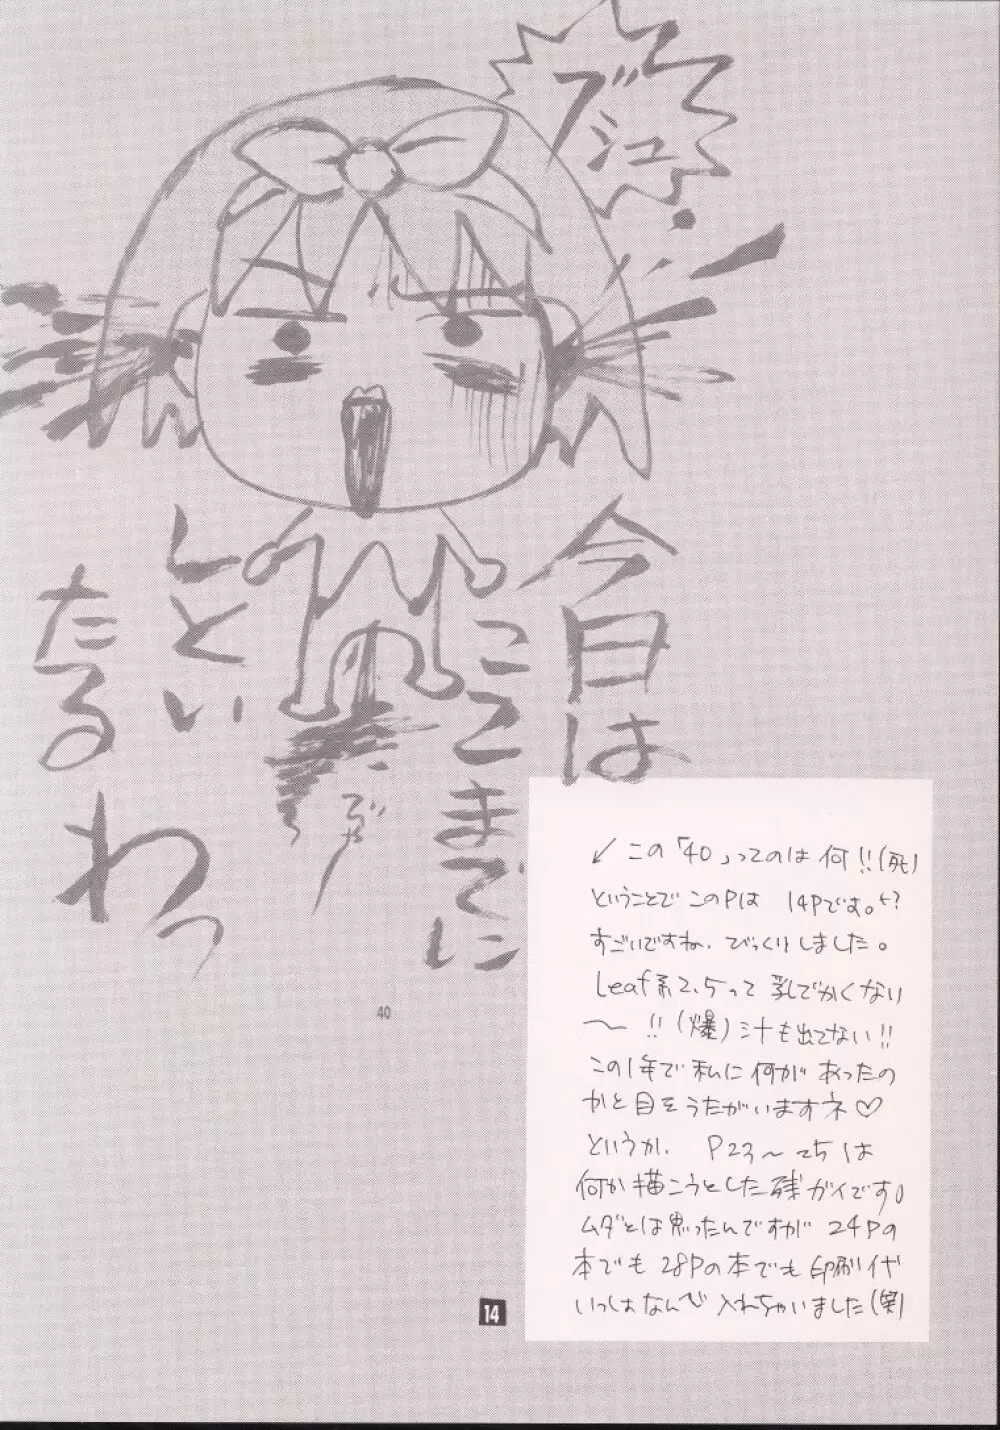 ブシュー
今日は
ここまでに
しとい
たるわっ
40
↙ この「40」ってのは 何!!(死)
ということで このPは 14Pです。
すごいですね、びっくりしました。
Leaf系2.5って 乳でかくない
〜 !!(爆)汁も出てない!!
この1年で 私に何が あったの
かと目をうたがいますネ♡
というか、P23〜25は
何か描こうとした残ガイです。
ムダとは思ったんですが 24Pの
本でも 28Pの本でも 印刷代
いっしょなんで 入れちゃいました(笑)
14